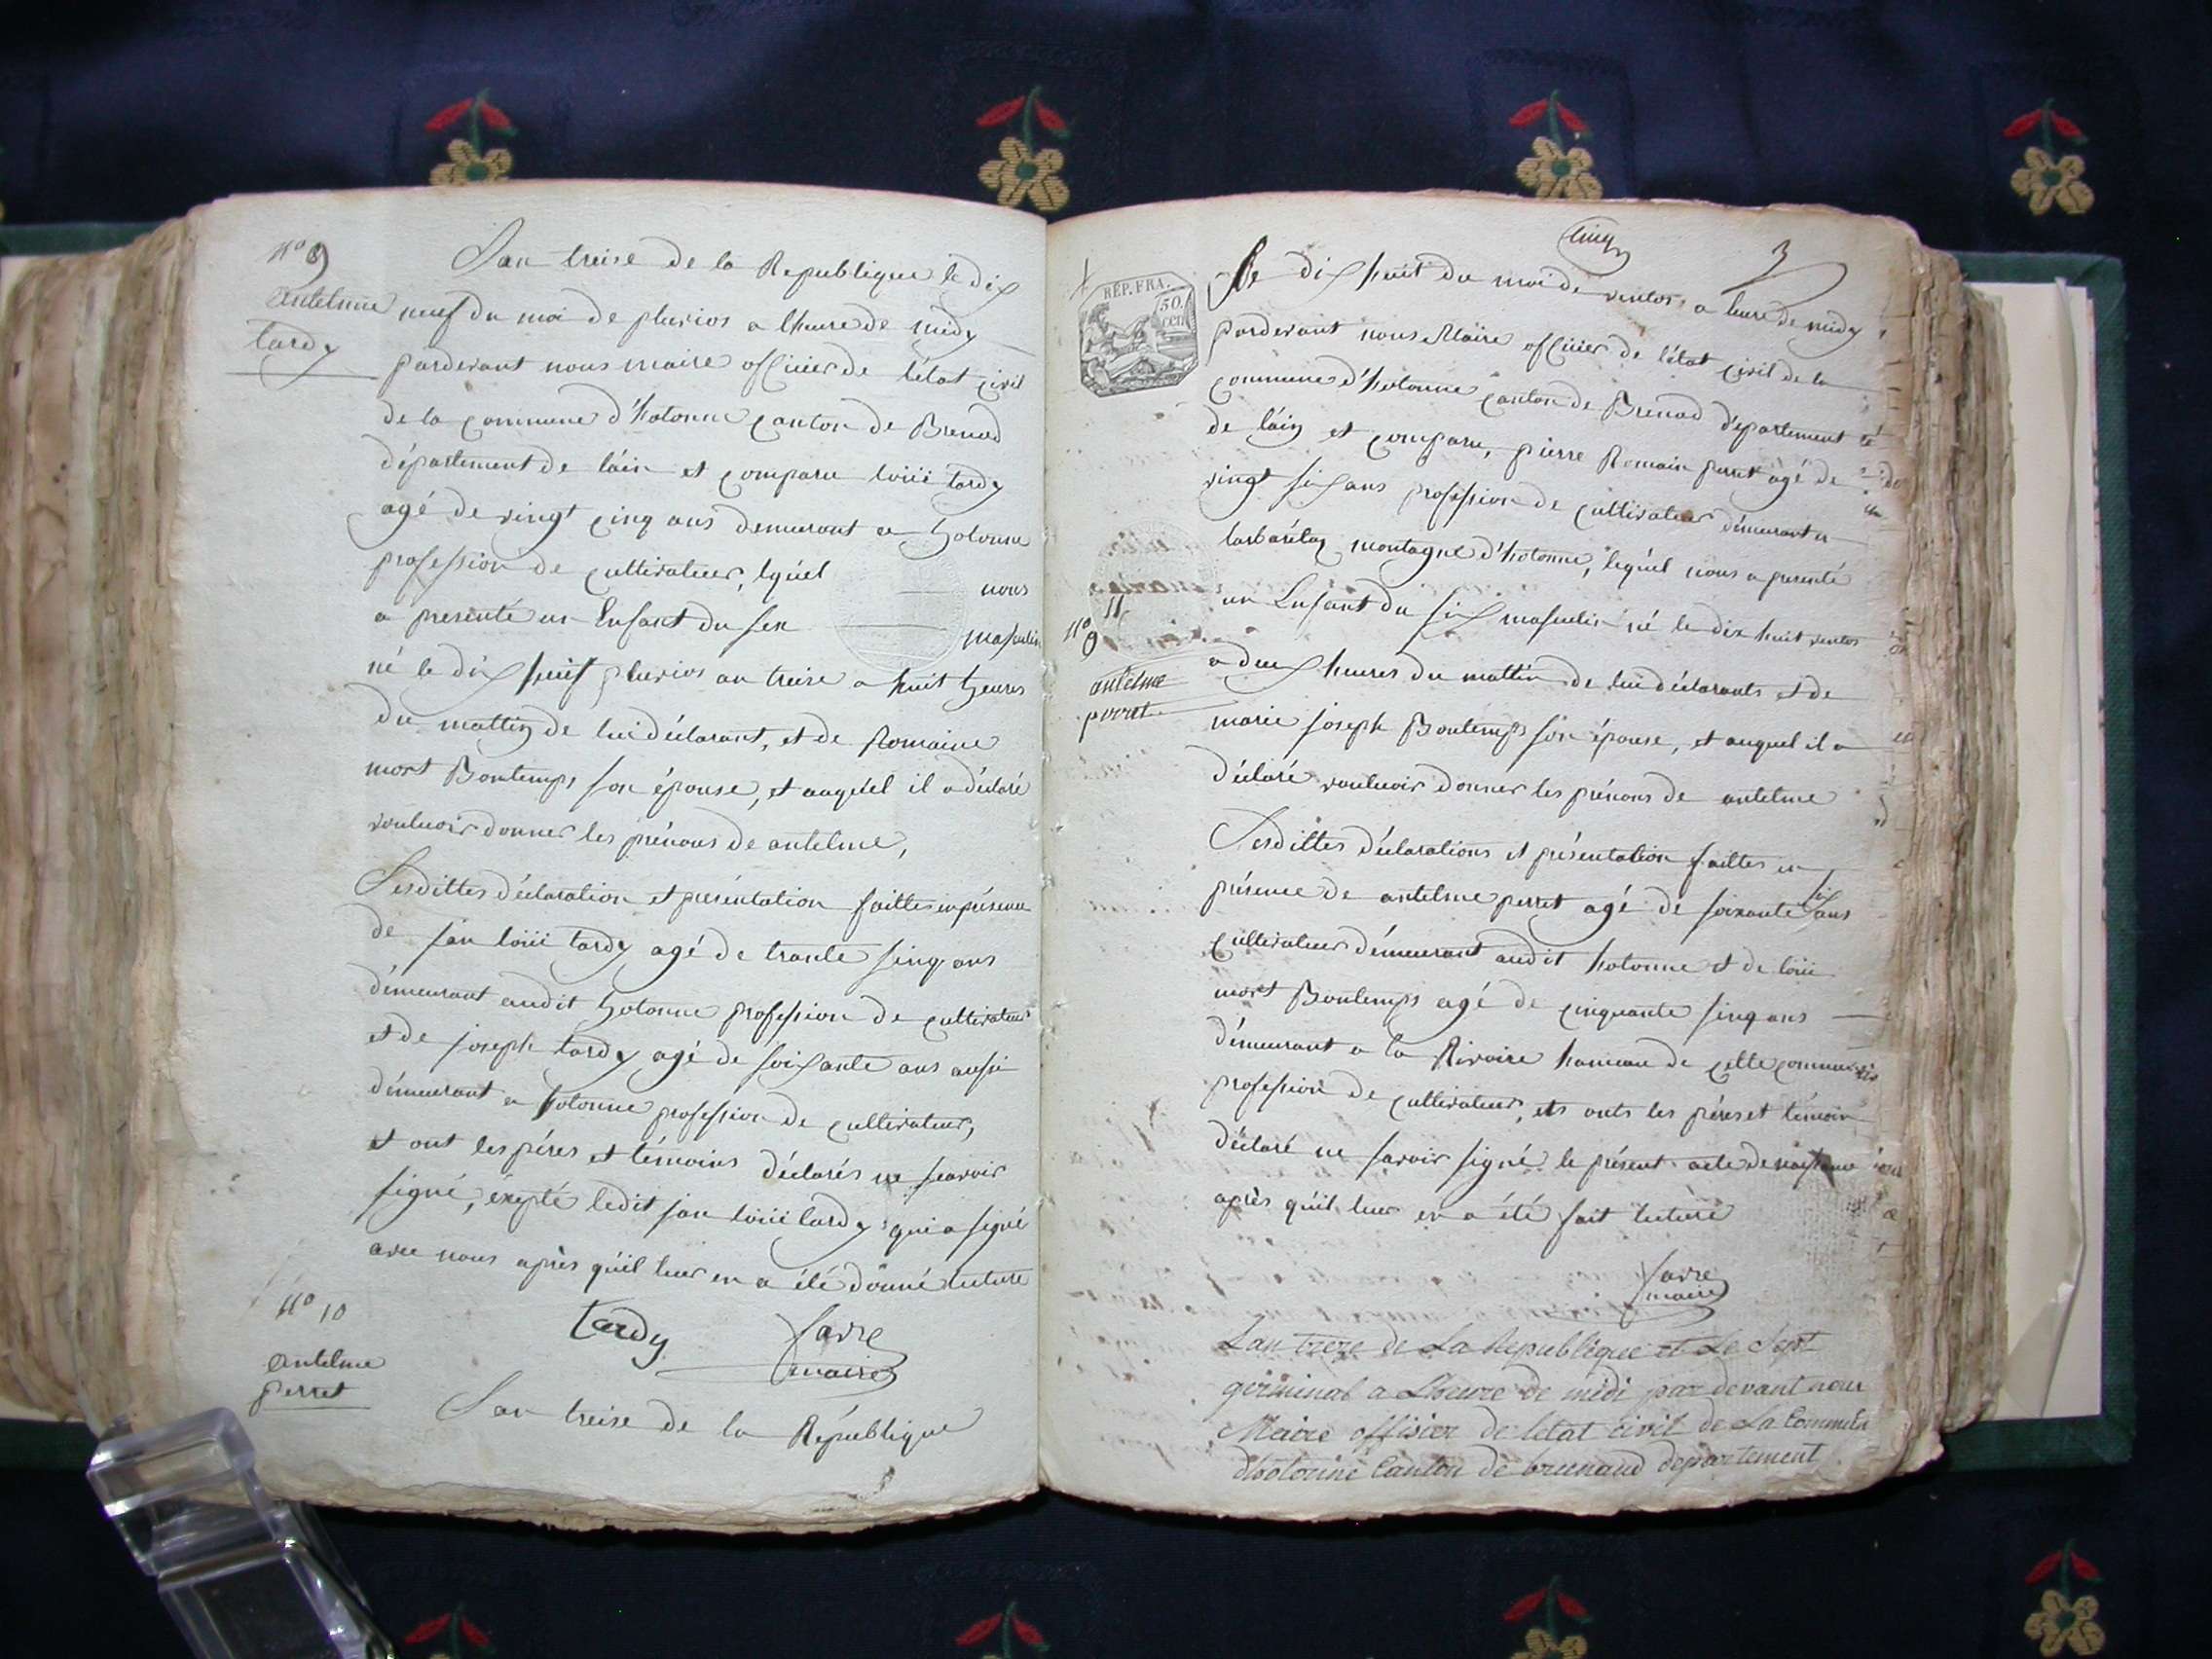 N° 9
antelme
tardy
Lan treise de la Republique le dix
neuf du moi de pluvios a lheure de midy
pardevant nous maire officier de l'état civil
de la commune d'hotonne canton de Brenod
département de l'ain et comparu loüi tardy
agé de vingt cinq ans demeurant a hotonne
profession de cultivateur, lquél nous
a presenté un Enfant du sex masculin
né le dix huit pluvios an treise a huit heures
du mattin de lui déclarant, et de Romaine
mort Bontemps son épouse, et auquél il a déclaré
vouluoir donner les prénons de antelme,
Lesdittes déclaration et présentation faittes en présence
de jan loüi tardy agé de trante sinq ans
démeurant audit hotonne profession de cultivateur
et de joseph tardy agé de soixante ans aussi
démeurant a hotonne profession de cultivateur,
et ont les péres et témoins déclarés ne scavoir
signé, éxepté ledit jan loüi tardy qui a signé
avec nous après quéil leur en a été donné lecture
tardy favre
maire
N° 10
antelme
perret
Lan treise de la République
cinq 3
REP. FRA.
50.
cen
le dix huit du moi de ventos a leure de midy
pardevant nous Maire officier de l'état civil de la
commune d'hotonne canton de Brenod département
de l'ain et comparu, pierre Romain perret agé de
vingt six ans profession de cultivateur démeurant a
montagne d'hotonne, lequél nous a presenté
un Enfant du six masculin né le dix huit ventos
a deux heures du mattin de lui déclarants et de
marie joseph Bontemps son épouse, et auquel il a
déclaré vouluoir donner les prénons de antelme
11
N° 9
antelme
perret
Lesdittes déclarations et présentation faittes en
présence de antelme perret agé de soixante six ans
cultivateur démeurant audit hotonne et de loüi
mort Bontemps agé de cinquante sinq ans
démeurant a la Rivoire hameau de cette commune
profession de cultivateur, ets onts les péres et témoin
déclaré ne savoir signé le présent acte de naissance
après qu'il leur en a été fait lecture
favre
maire
Lan treze de La Republique et Le Sept
germinal a Lheure de midi par devant nous
Maire offisier de letat civil de La Commune
dhotonne Canton de brenaud departement